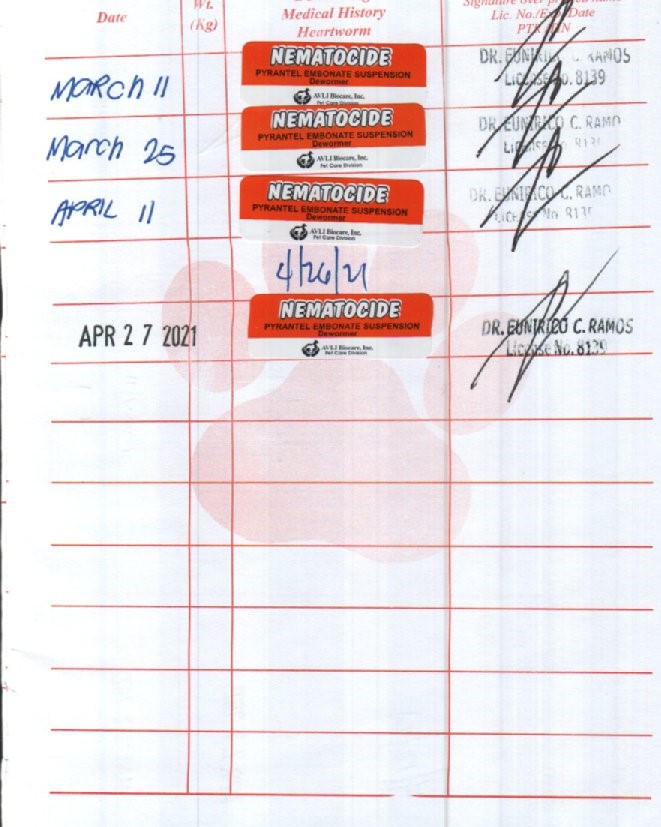 Date
Wt.
(Kg)
Medical History
Heartworm
Lic. No./ Date
PTR
March 11
NEMATOCIDE
PYRANTEL EMBONATE SUSPENSION
Dewormer
AVLI Biocare, Inc.
Pet Care Division
DR. EUNIRICO C. RAMOS
License No. 8139
March 25
NEMATOCIDE
PYRANTEL EMBONATE SUSPENSION
Dewormer
AVLI Biocare, Inc.
Pet Care Division
DR. EUNIRICO C. RAMO
APRIL 11
NEMATOCIDE
PYRANTEL EMBONATE SUSPENSION
Dewormer
AVLI Biocare, Inc.
Pet Care Division
DR. EUNIRICO C. RAMO
License No.
4/26/21
APR 27 2021
NEMATOCIDE
PYRANTEL EMBONATE SUSPENSION
Dewormer
AVLI Biocare, Inc.
Pet Care Division
DR. EUNIRICO C. RAMOS
License No. 8139